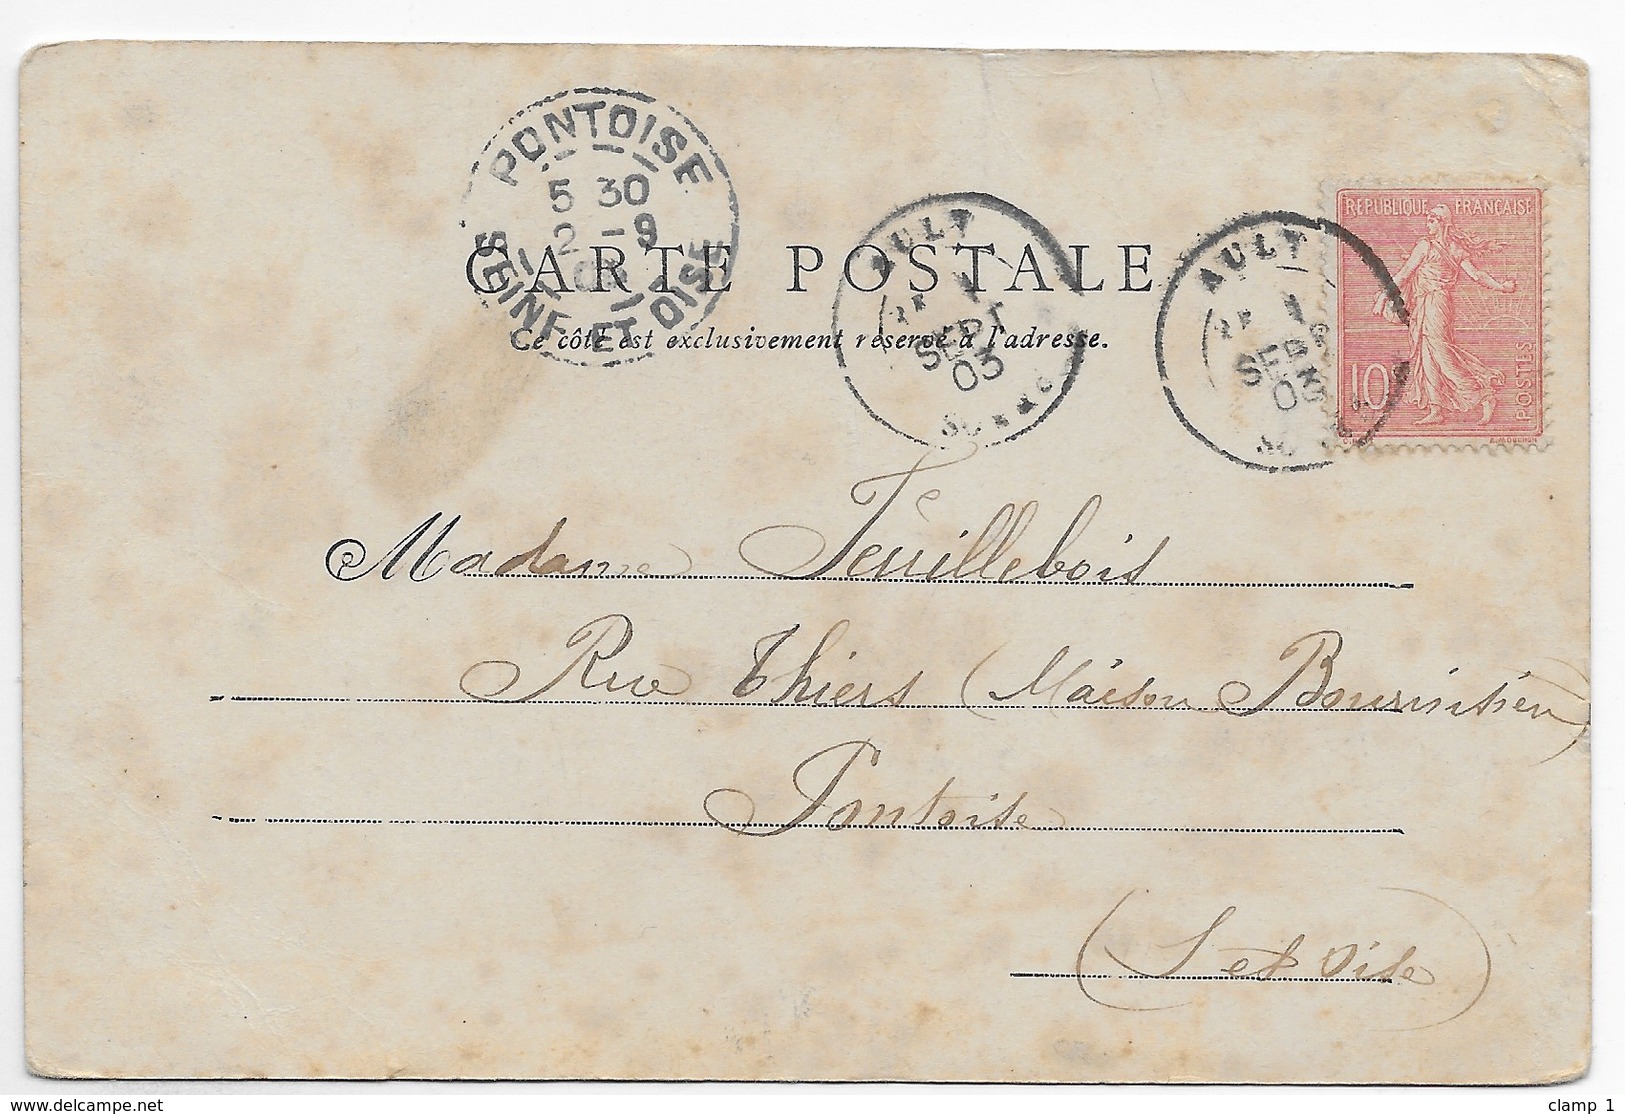 PONTOISE
5 30
2 -9
03
SEINE-ET-OISE
AULT
1
SEPT
03
AULT
1
SEPT
03
REPUBLIQUE FRANÇAISE
10
POSTES
CARTE POSTALE
Ce côté est exclusivement réservé à l'adresse.
Madame Feuillebois
Rue Thiers (Maison
Pontoise
(S et Oise)
delcampe.net
clamp_1